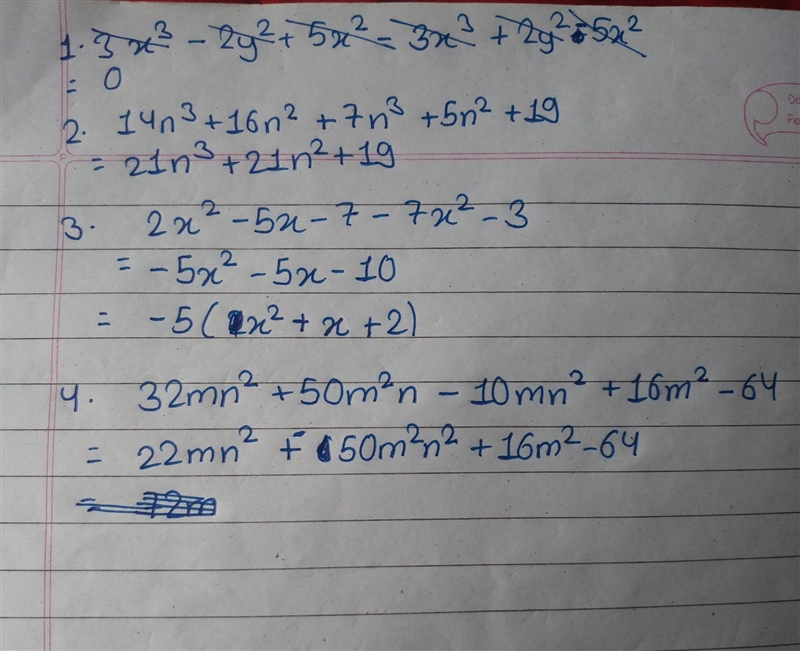 1. 3x³ - 2y² + 5x² - 3x³ + 2y² - 5x²
= 0
2. 14n³ + 16n² + 7n³ + 5n² + 19
= 21n³ + 21n² + 19
3. 2x² - 5x - 7 - 7x² - 3
= -5x² - 5x - 10
= -5(x² + x + 2)
4. 32mn² + 50m²n - 10mn² + 16m² - 64
= 22mn² + 50m²n² + 16m² - 64
= 72m